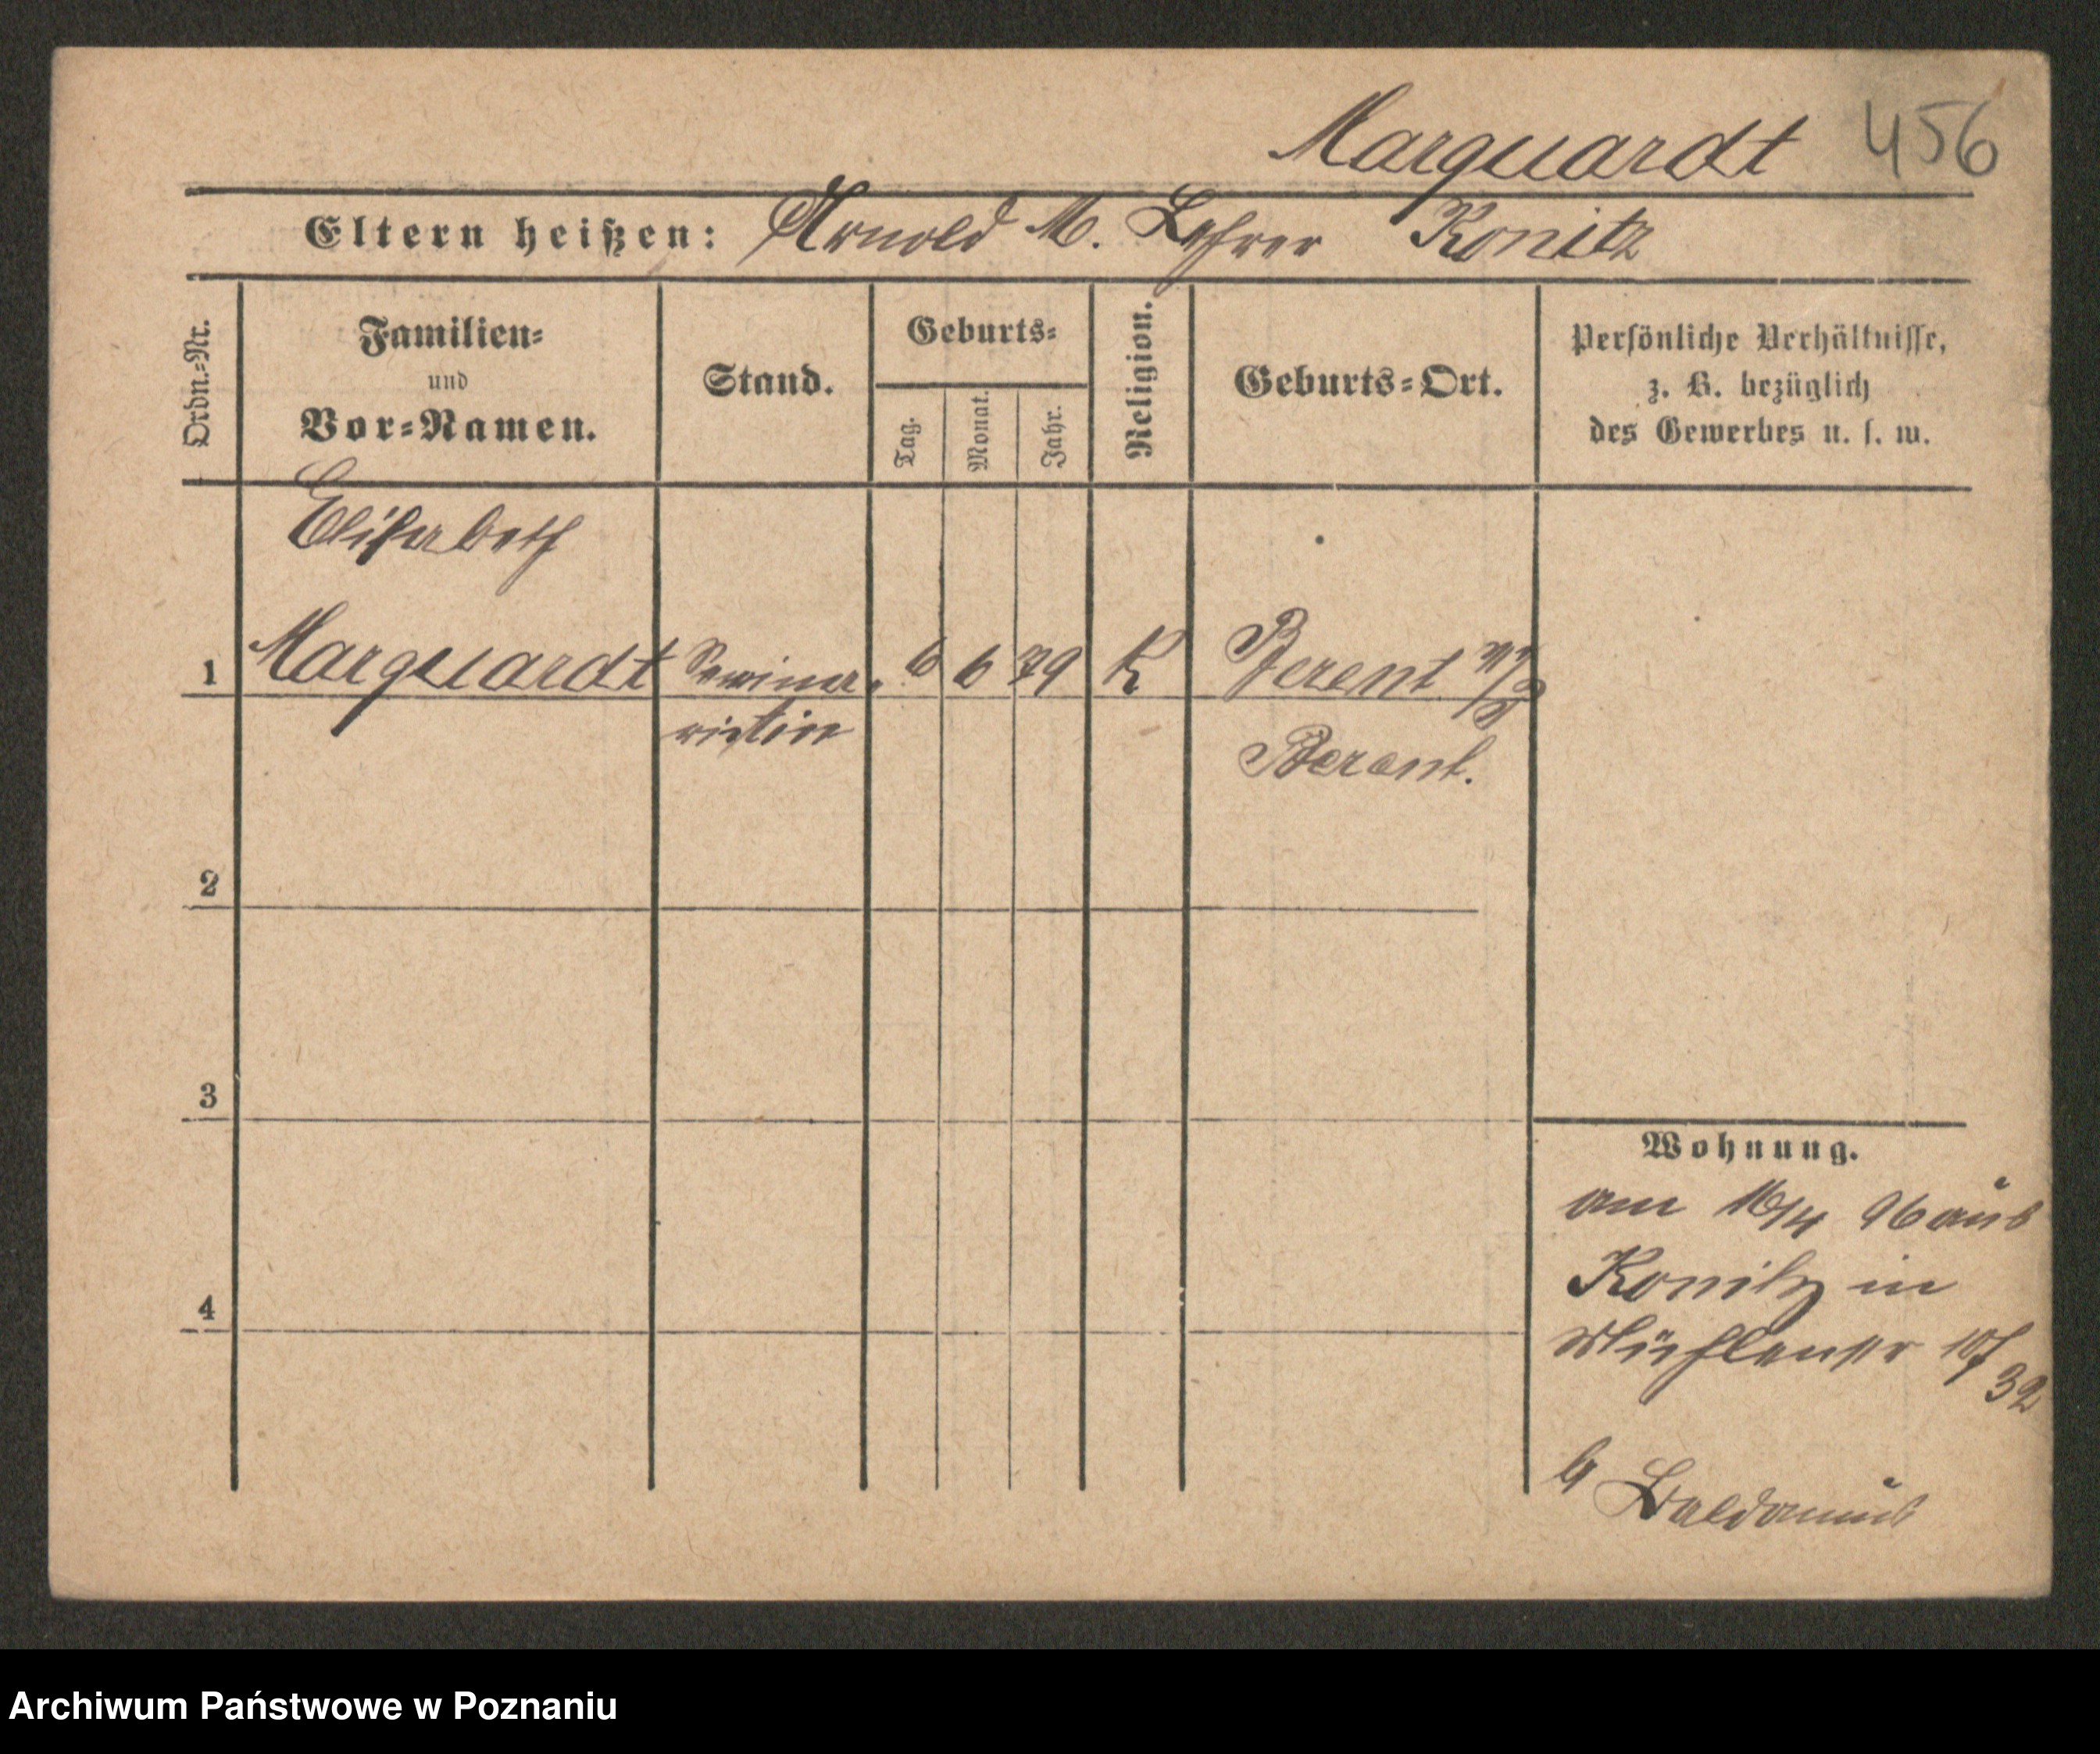 Marquardt 456
Eltern heißen: Arnold M. Lehrer Konitz
Ordn.-Nr.
Familien-
und
Vor-Namen.
Stand.
Geburts-
Tag.
Monat.
Jahr.
Religion.
Geburts-Ort.
Persönliche Verhältnisse,
z. B. bezüglich
des Gewerbes u. s. w.
Elisabeth
1 Marquardt Semina- 6 6 79 K Berent
ristin
Berent.
2
3
4
Wohnung.
am 16/4 96 aus
Konitz in
Mühlenstr
32
Archiwum Państwowe w Poznaniu